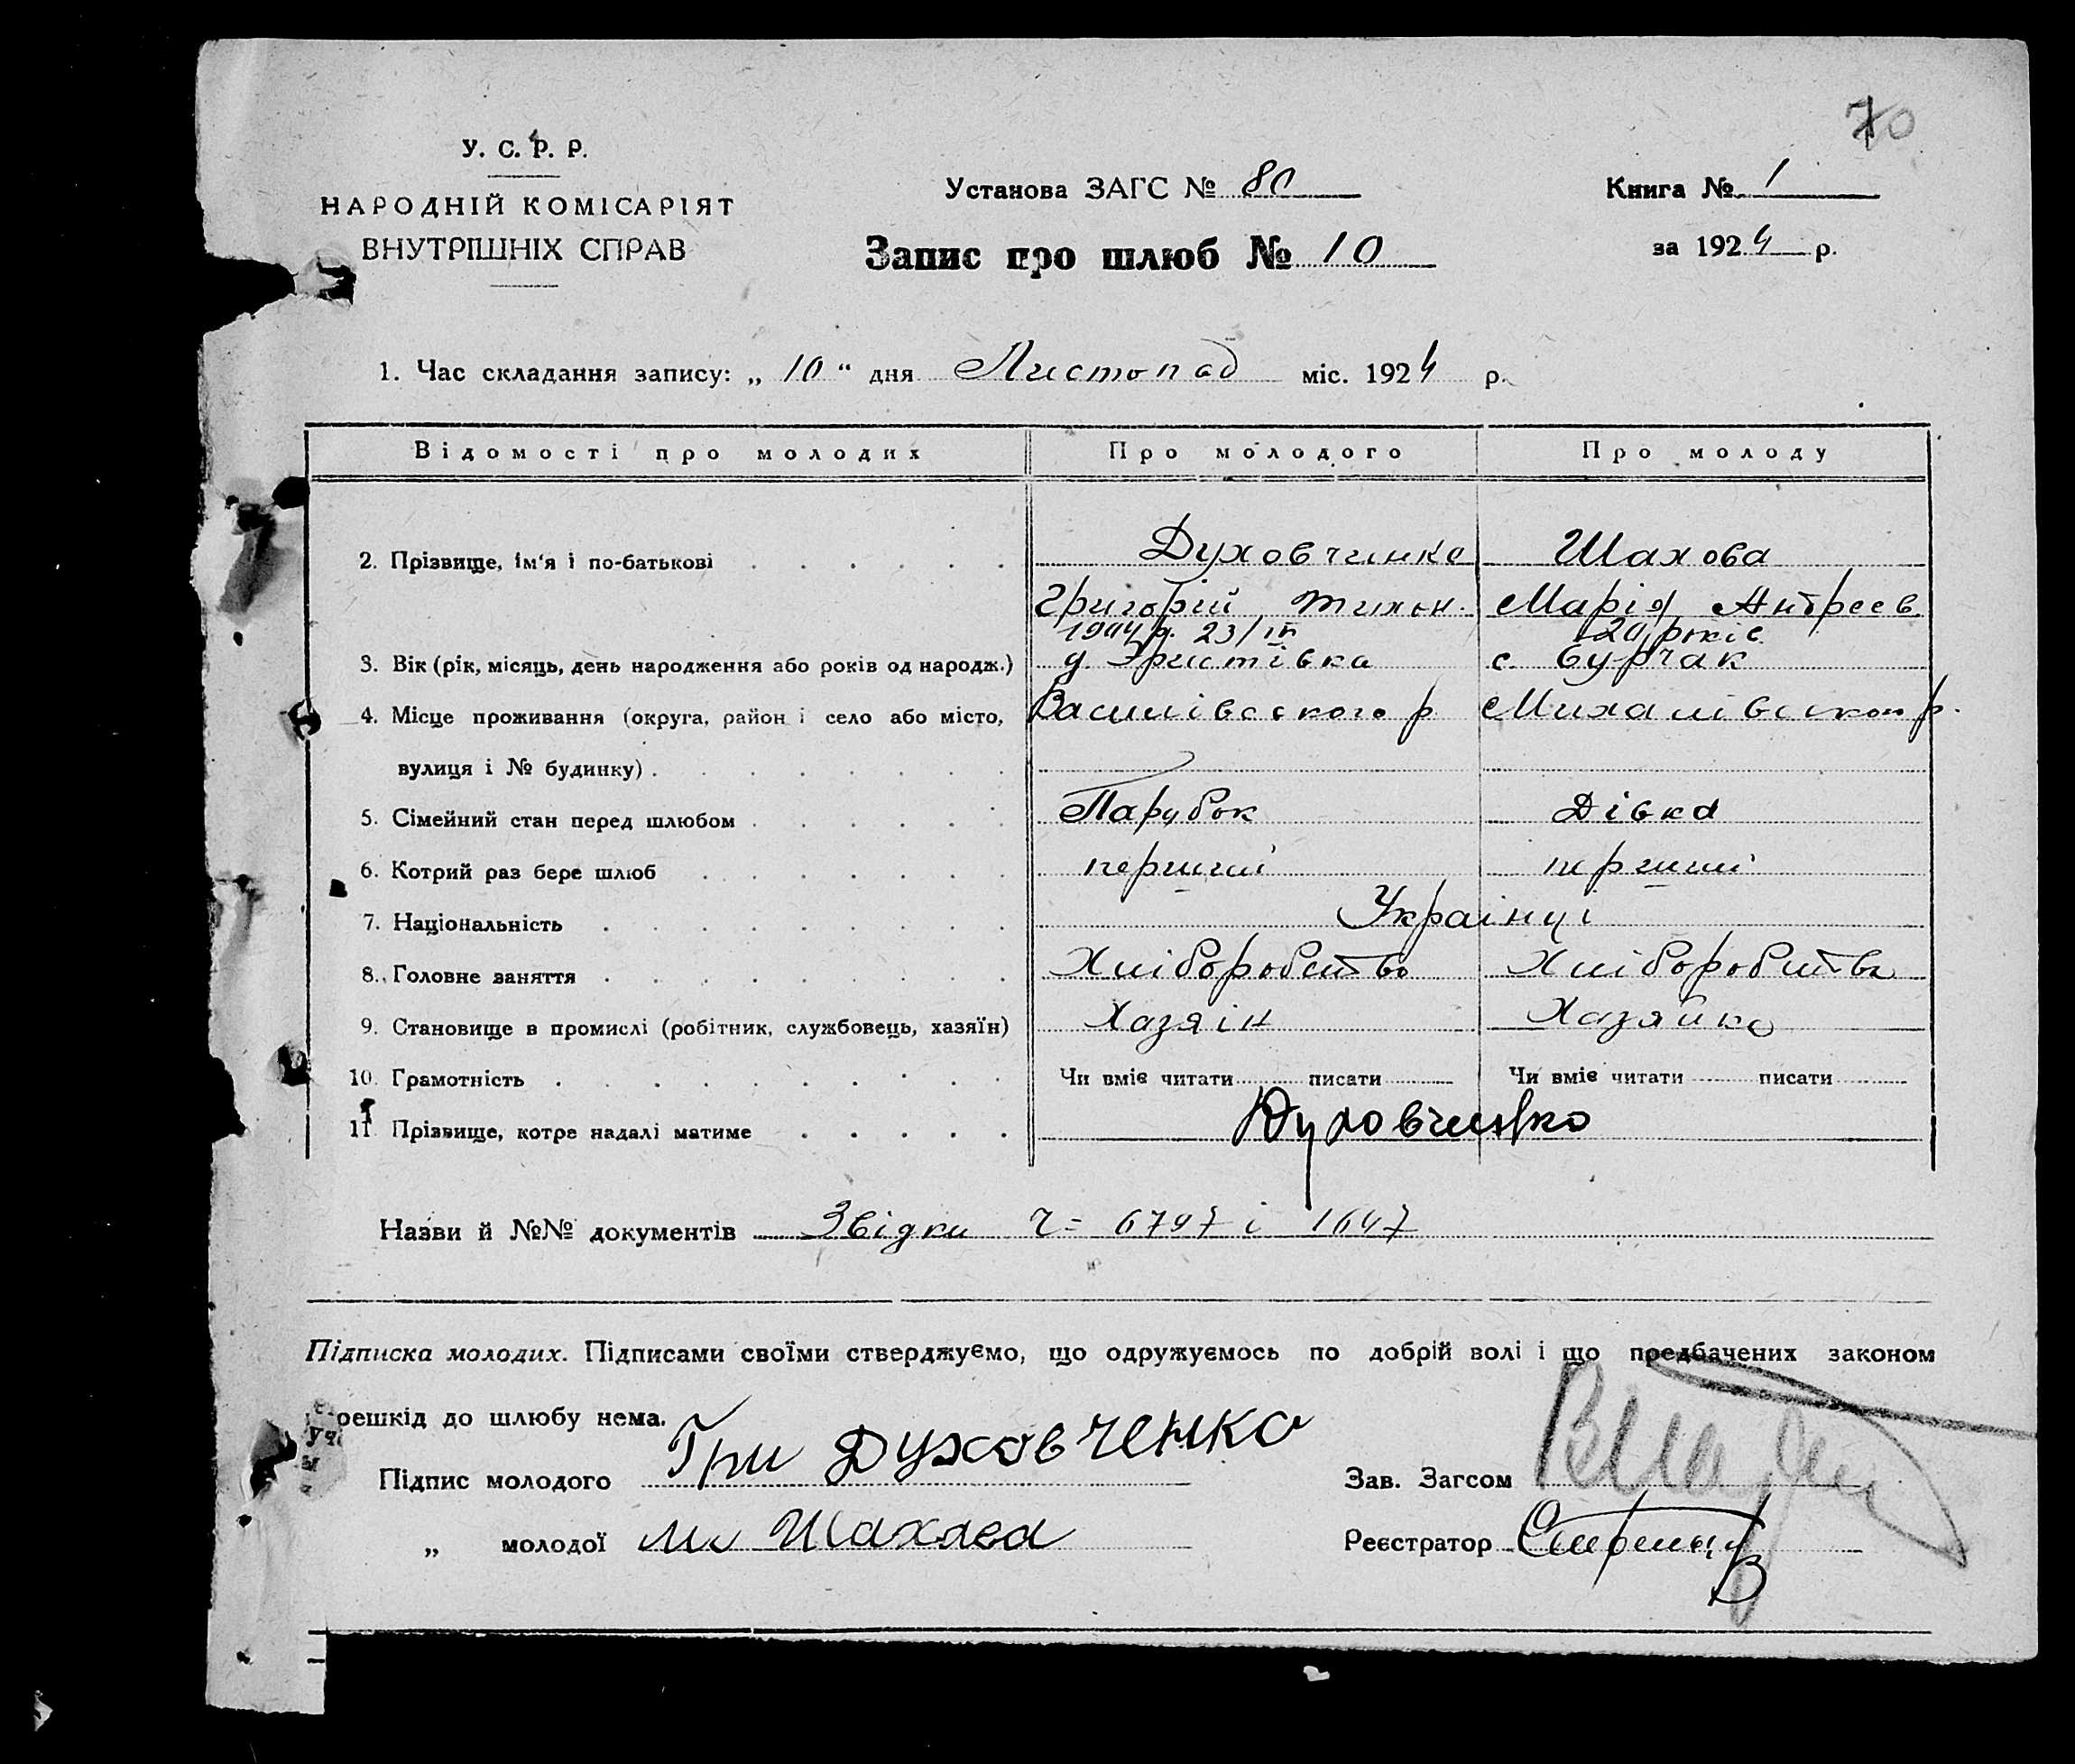 70
У. С. Р. Р.
НАРОДНІЙ КОМІСАРІЯТ
ВНУТРІШНІХ СПРАВ
Установа ЗАГС № 80
Запис про шлюб № 10
Книга № 1
за 1924 р.
1. Час складання запису: „ 10 “ дня Листопад міс. 1924 р.
Відомості про молодих Про молодого Про молоду
2. Прізвище, ім'я і по-батькові Духовчинко Шахова
Григорій Тихон. Марія Андреев
23/ІІІ 20 років
3. Вік (рік, місяць, день народження або років од народж.) Эристівка с. Бурчак
4. Місце проживання (округа, район і село або місто, Василівского р Михалівского р.
вулиця і № будинку)
5. Сімейний стан перед шлюбом Парубок Дівка
6. Котрий раз бере шлюб перший перший
7. Національність Украінці
8. Головне заняття Хліборобство Хліборобства
9. Становище в промислі (робітник, службовець, хазяїн) Хазяін Хазяйка
10. Грамотність Чи вміє читати писати Чи вміє читати писати
11 Прізвище, котре надалі матиме Духовчинко
Назви й №№ документів Звідки ч= 6797 і 1647
Підписка молодих. Підписами своїми стверджуємо, що одружуємось по добрій волі і що предбачених законом
решкід до шлюбу нема.
Підпис молодого Гри Духовченко
Зав. Загсом
„ молодої М Шахова
Реєстратор